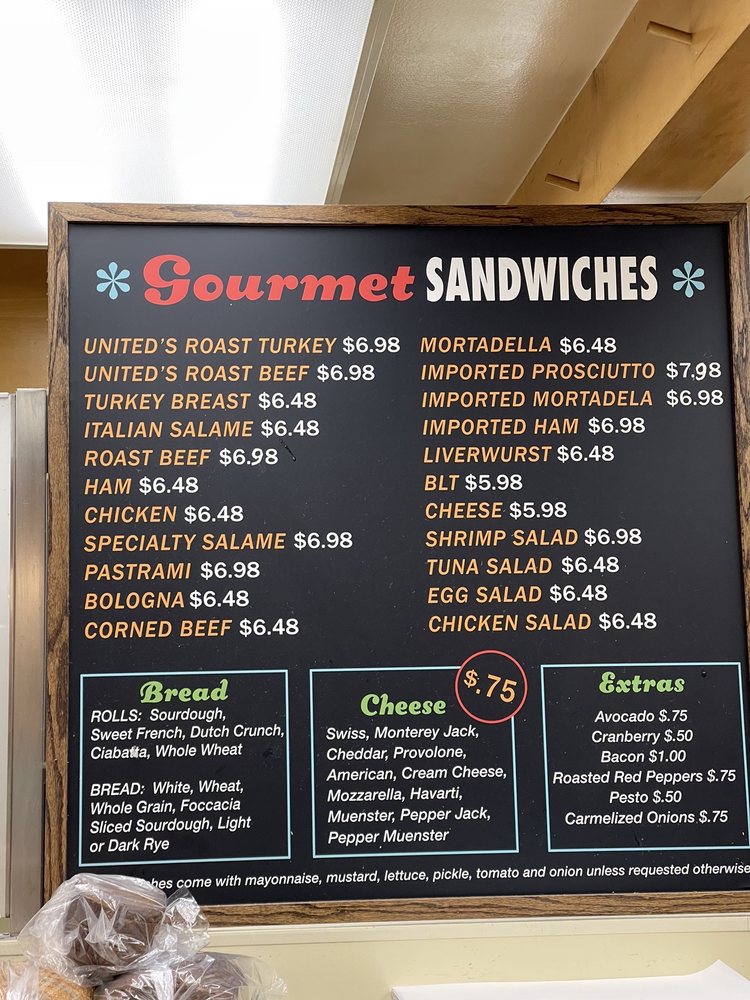 Gourmet SANDWICHES
UNITED'S ROAST TURKEY $6.98
UNITED'S ROAST BEEF $6.98
TURKEY BREAST $6.48
ITALIAN SALAME $6.48
ROAST BEEF $6.98
HAM $6.48
CHICKEN $6.48
SPECIALTY SALAME $6.98
PASTRAMI $6.98
BOLOGNA $6.48
CORNED BEEF $6.48
MORTADELLA $6.48
IMPORTED PROSCIUTTO $7.98
IMPORTED MORTADELA $6.98
IMPORTED HAM $6.98
LIVERWURST $6.48
BLT $5.98
CHEESE $5.98
SHRIMP SALAD $6.98
TUNA SALAD $6.48
EGG SALAD $6.48
CHICKEN SALAD $6.48
Bread
ROLLS: Sourdough,
Sweet French, Dutch Crunch,
Ciabatta, Whole Wheat
BREAD: White, Wheat,
Whole Grain, Foccacia
Sliced Sourdough, Light
or Dark Rye
Cheese
$.75
Swiss, Monterey Jack,
Cheddar, Provolone,
American, Cream Cheese,
Mozzarella, Havarti,
Muenster, Pepper Jack,
Pepper Muenster
Extras
Avocado $.75
Cranberry $.50
Bacon $1.00
Roasted Red Peppers $.75
Pesto $.50
Carmelized Onions $.75
come with mayonnaise, mustard, lettuce, pickle, tomato and onion unless requested otherwise